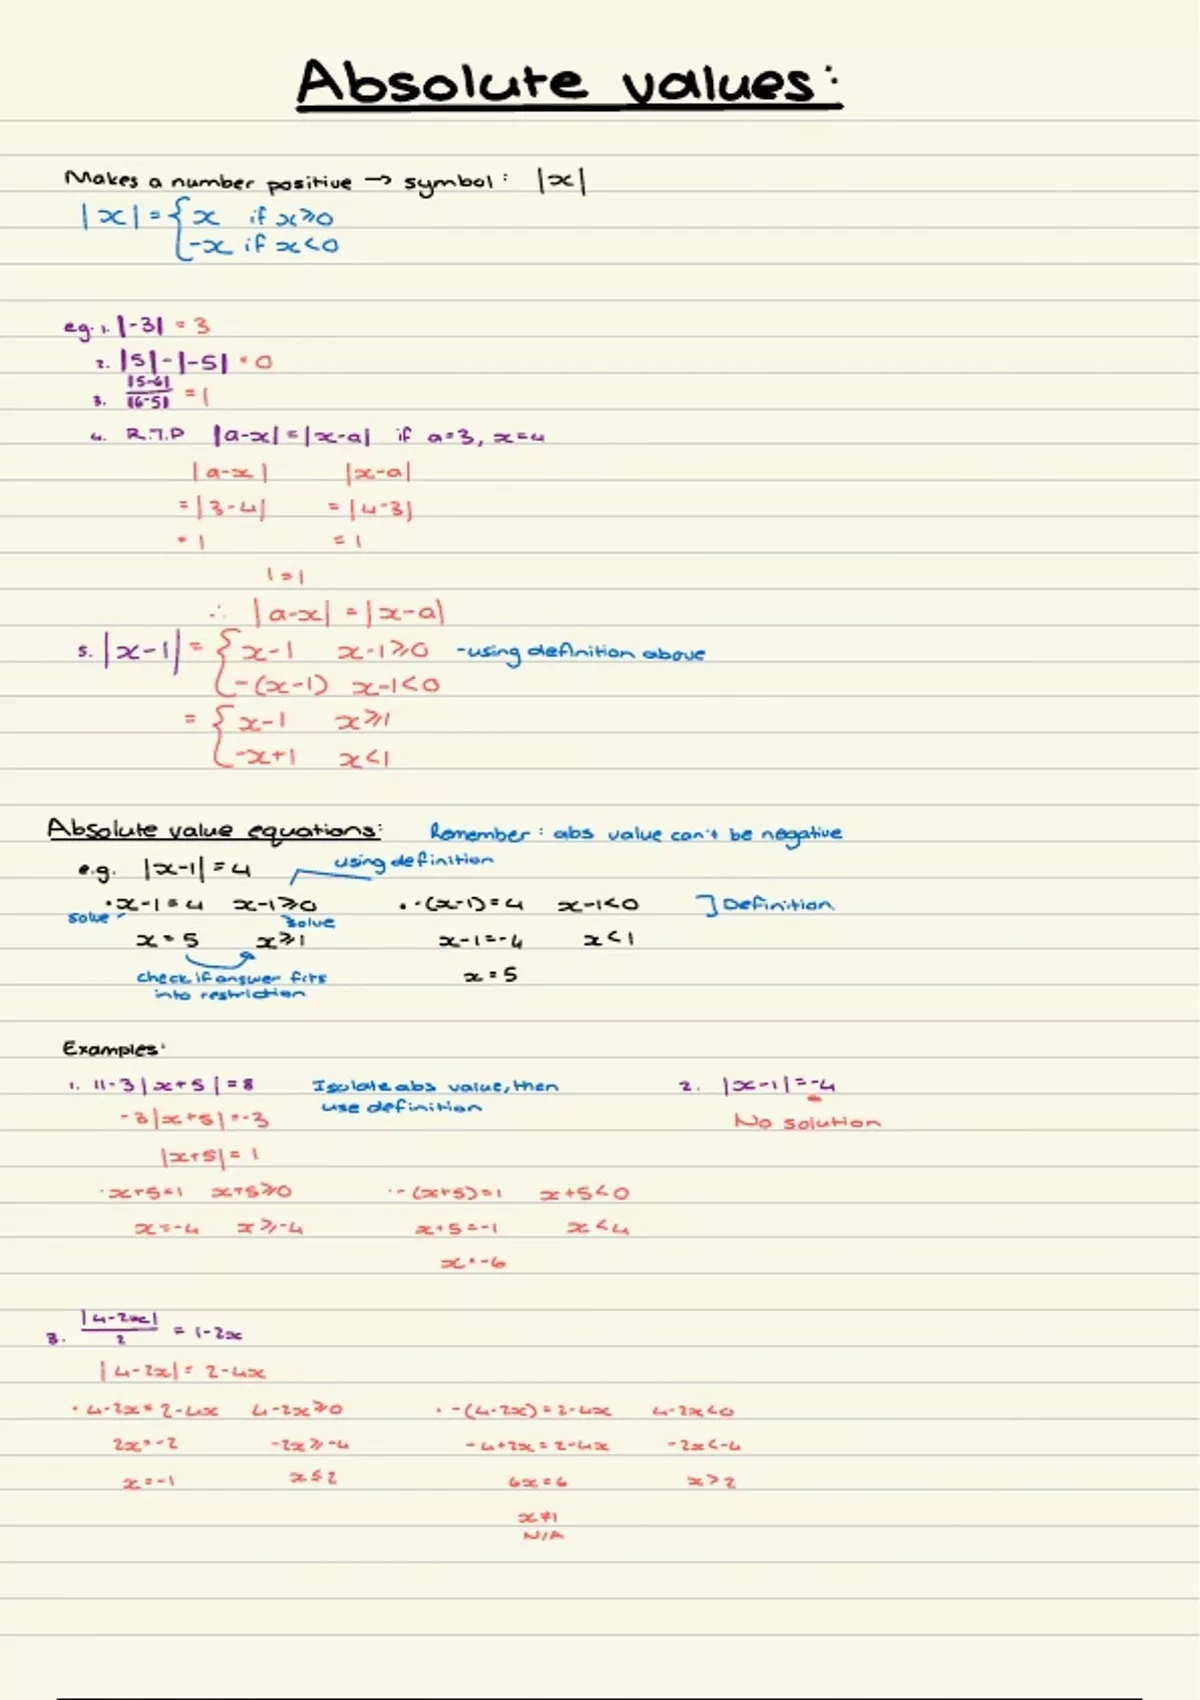 Absolute values:
Makes a number positive → symbol: |x|
|x| = { x if x≥0
-x if x<0
eg. 1. |-3| = 3
2. |5|-|-5| = 0
3. |5-6| / |6-5| = 1
4. R.T.P |a-x|=|x-a| if a=3, x=4
|a-x| |x-a|
=|3-4| =|4-3|
=1 =1
1=1
∴ |a-x| = |x-a|
5. |x-1| = { x-1 x-1≥0 -using definition above
-(x-1) x-1<0
= { x-1 x≥1
-x+1 x<1
Absolute value equations: Remember: abs value can't be negative
e.g. |x-1|=4 using definition
·x-1=4 x-1≥0 ·-(x-1)=4 x-1<0 ] Definition
solve solve
x=5 x≥1 x-1=-4 x<1
check if answer fits x=5
into restriction
Examples:
1. 11-3|x+5|=8 Isolate abs value, then 2. |x-1|=-4
use definition
-3|x+5|=-3 No solution
|x+5|=1
·x+5=1 x+5≥0 ·-(x+5)=1 x+5<0
x=-4 x≥-4 x+5=-1 x<4
x=-6
3. |4-2x| / 2 = 1-2x
|4-2x|= 2-4x
·4-2x=2-4x 4-2x≥0 ·-(4-2x)=2-4x 4-2x<0
2x=-2 -2x≥-4 -4+2x=2-4x -2x<-4
x=-1 x≤2 6x=6 x>2
x≠1
N/A